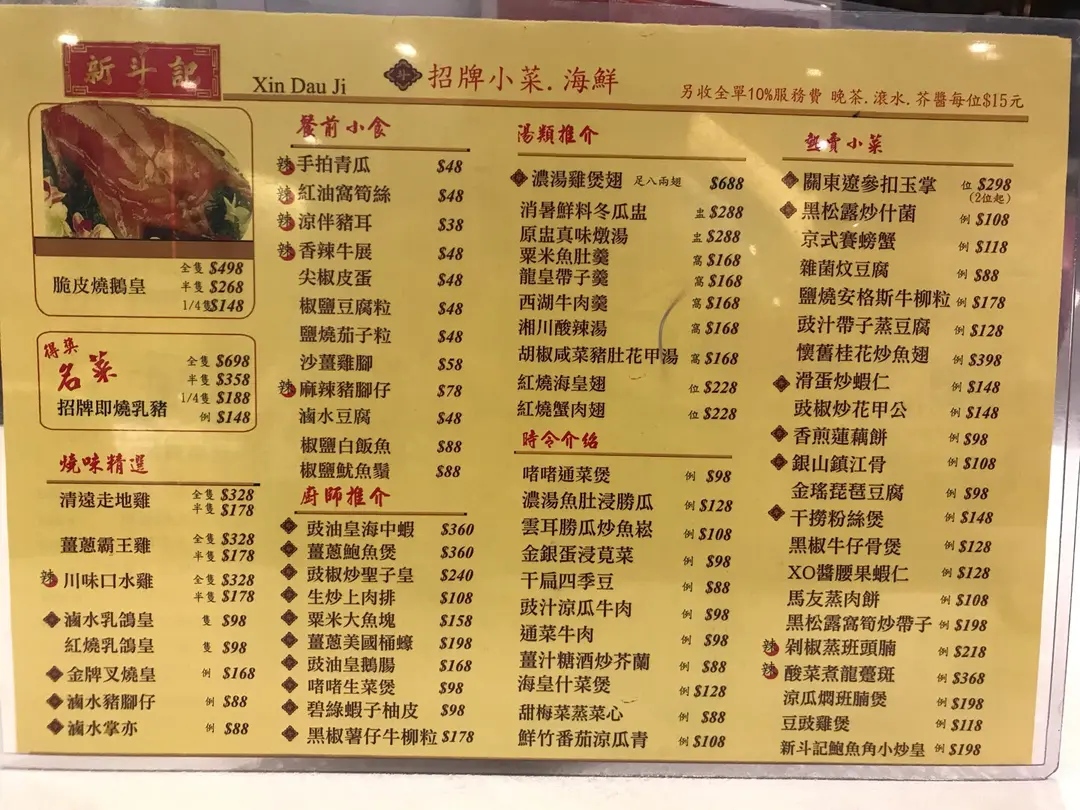 新斗記
Xin Dau Ji
招牌小菜.海鮮
另收全單10%服務費 晚茶.滾水.芥醬每位$15元
脆皮燒鵝皇
全隻 $498
半隻 $268
1/4隻 $148
得獎
名菜
招牌即燒乳豬
全隻 $698
半隻 $358
1/4隻 $188
例 $148
燒味精選
清遠走地雞 全隻 $328
半隻 $178
薑蔥霸王雞 全隻 $328
半隻 $178
辣 川味口水雞 全隻 $328
半隻 $178
滷水乳鴿皇 隻 $98
紅燒乳鴿皇 隻 $98
金牌叉燒皇 例 $168
滷水豬腳仔 例 $88
滷水掌亦 例 $88
餐前小食
辣 手拍青瓜 $48
辣 紅油窩筍絲 $48
辣 涼伴豬耳 $38
辣 香辣牛展 $48
尖椒皮蛋 $48
椒鹽豆腐粒 $48
鹽燒茄子粒 $48
沙薑雞腳 $58
辣 麻辣豬腳仔 $78
滷水豆腐 $48
椒鹽白飯魚 $88
椒鹽魷魚鬚 $88
廚師推介
豉油皇海中蝦 $360
薑蔥鮑魚煲 $360
豉椒炒聖子皇 $240
生炒上肉排 $108
粟米大魚塊 $158
薑蔥美國桶蠔 $198
豉油皇鵝腸 $168
啫啫生菜煲 $98
碧綠蝦子柚皮 $98
黑椒薯仔牛柳粒 $178
湯類推介
濃湯雞煲翅 足八兩翅 $688
消暑鮮料冬瓜盅 盅 $288
原盅真味燉湯 盅 $288
粟米魚肚羹 窩 $168
龍皇帶子羹 窩 $168
西湖牛肉羹 窩 $168
湘川酸辣湯 窩 $168
胡椒咸菜豬肚花甲湯 窩 $168
紅燒海皇翅 位 $228
紅燒蟹肉翅 位 $228
時令介紹
啫啫通菜煲 例 $98
濃湯魚肚浸勝瓜 例 $128
雲耳勝瓜炒魚崧 例 $108
金銀蛋浸莧菜 例 $98
干扁四季豆 例 $88
豉汁涼瓜牛肉 例 $98
通菜牛肉 例 $98
薑汁糖酒炒芥蘭 例 $88
海皇什菜煲 例 $128
甜梅菜蒸菜心 例 $88
鮮竹番茄涼瓜青 例 $108
熱賣小菜
關東遼參扣玉掌 位 $298
(2位起)
黑松露炒什菌 例 $108
京式賽螃蟹 例 $118
雜菌炆豆腐 例 $88
鹽燒安格斯牛柳粒 例 $178
豉汁帶子蒸豆腐 例 $128
懷舊桂花炒魚翅 例 $398
滑蛋炒蝦仁 例 $148
豉椒炒花甲公 例 $148
香煎蓮藕餅 例 $98
銀山鎮江骨 例 $108
金瑤琵琶豆腐 例 $98
干撈粉絲煲 例 $148
黑椒牛仔骨煲 例 $128
XO醬腰果蝦仁 例 $128
馬友蒸肉餅 例 $108
黑松露窩筍炒帶子 例 $198
辣 剁椒蒸班頭腩 例 $218
辣 酸菜煮龍躉斑 例 $368
涼瓜燜班腩煲 例 $198
豆豉雞煲 例 $118
新斗記鮑魚角小炒皇 例 $198